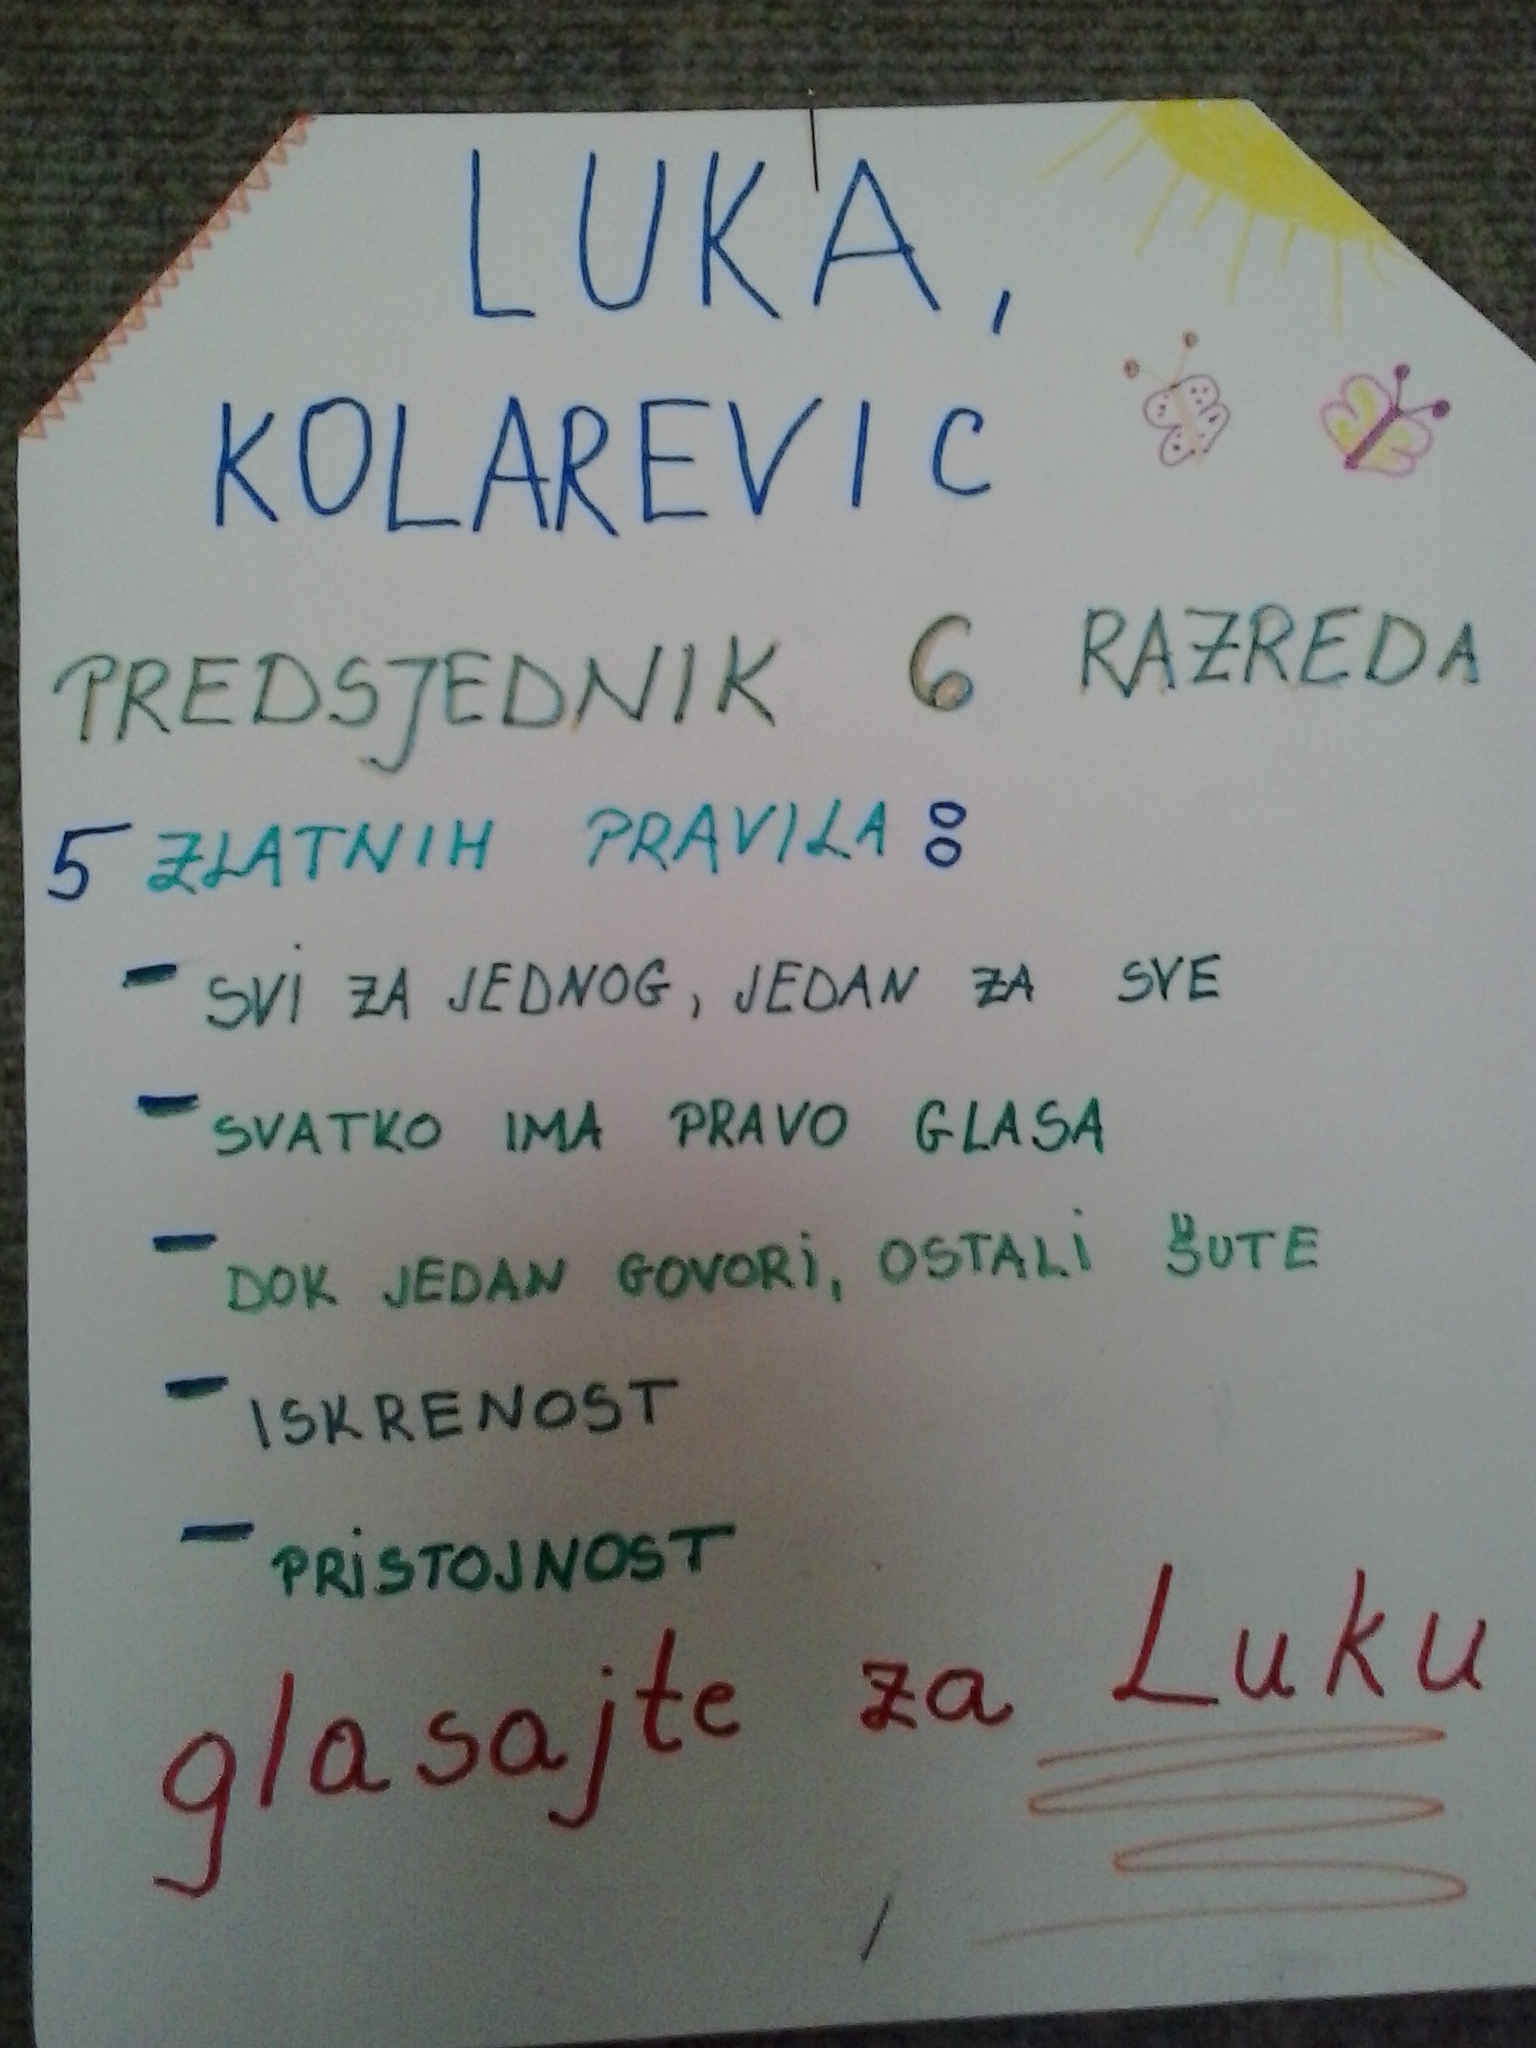 LUKA,
KOLAREVIC
PREDSJEDNIK 6 RAZREDA
5 ZLATNIH PRAVILA:
- SVI ZA JEDNOG, JEDAN ZA SVE
- SVATKO IMA PRAVO GLASA
- DOK JEDAN GOVORI, OSTALI ŠUTE
- ISKRENOST
- PRISTOJNOST
glasajte za Luku